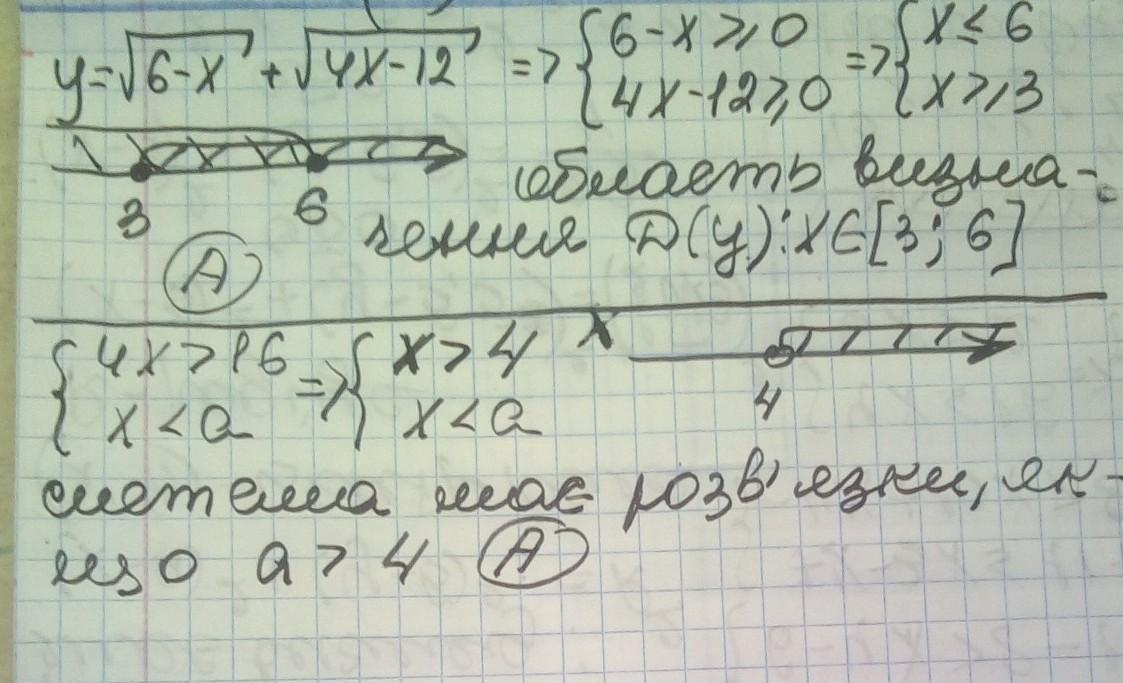 y=√6-x + √4x-12 => { 6-x≥0 4x-12≥0 => { x≤6 x≥3
3 6 область визна-
чення D(y): x∈[3; 6]
А
{ 4x>16 x<a => { x>4 x<a x
4
система має розв'язки, як-
що a>4 А